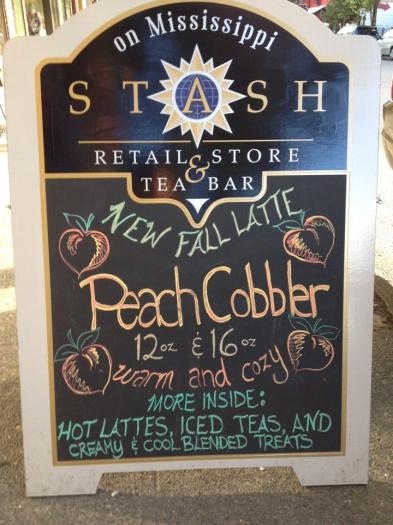 on Mississippi
STASH
RETAIL & STORE
TEA BAR
NEW FALL LATTE
Peach Cobbler
12oz & 16oz
warm and cozy
MORE INSIDE:
HOT LATTES, ICED TEAS, AND
CREAMY & COOL BLENDED TREATS